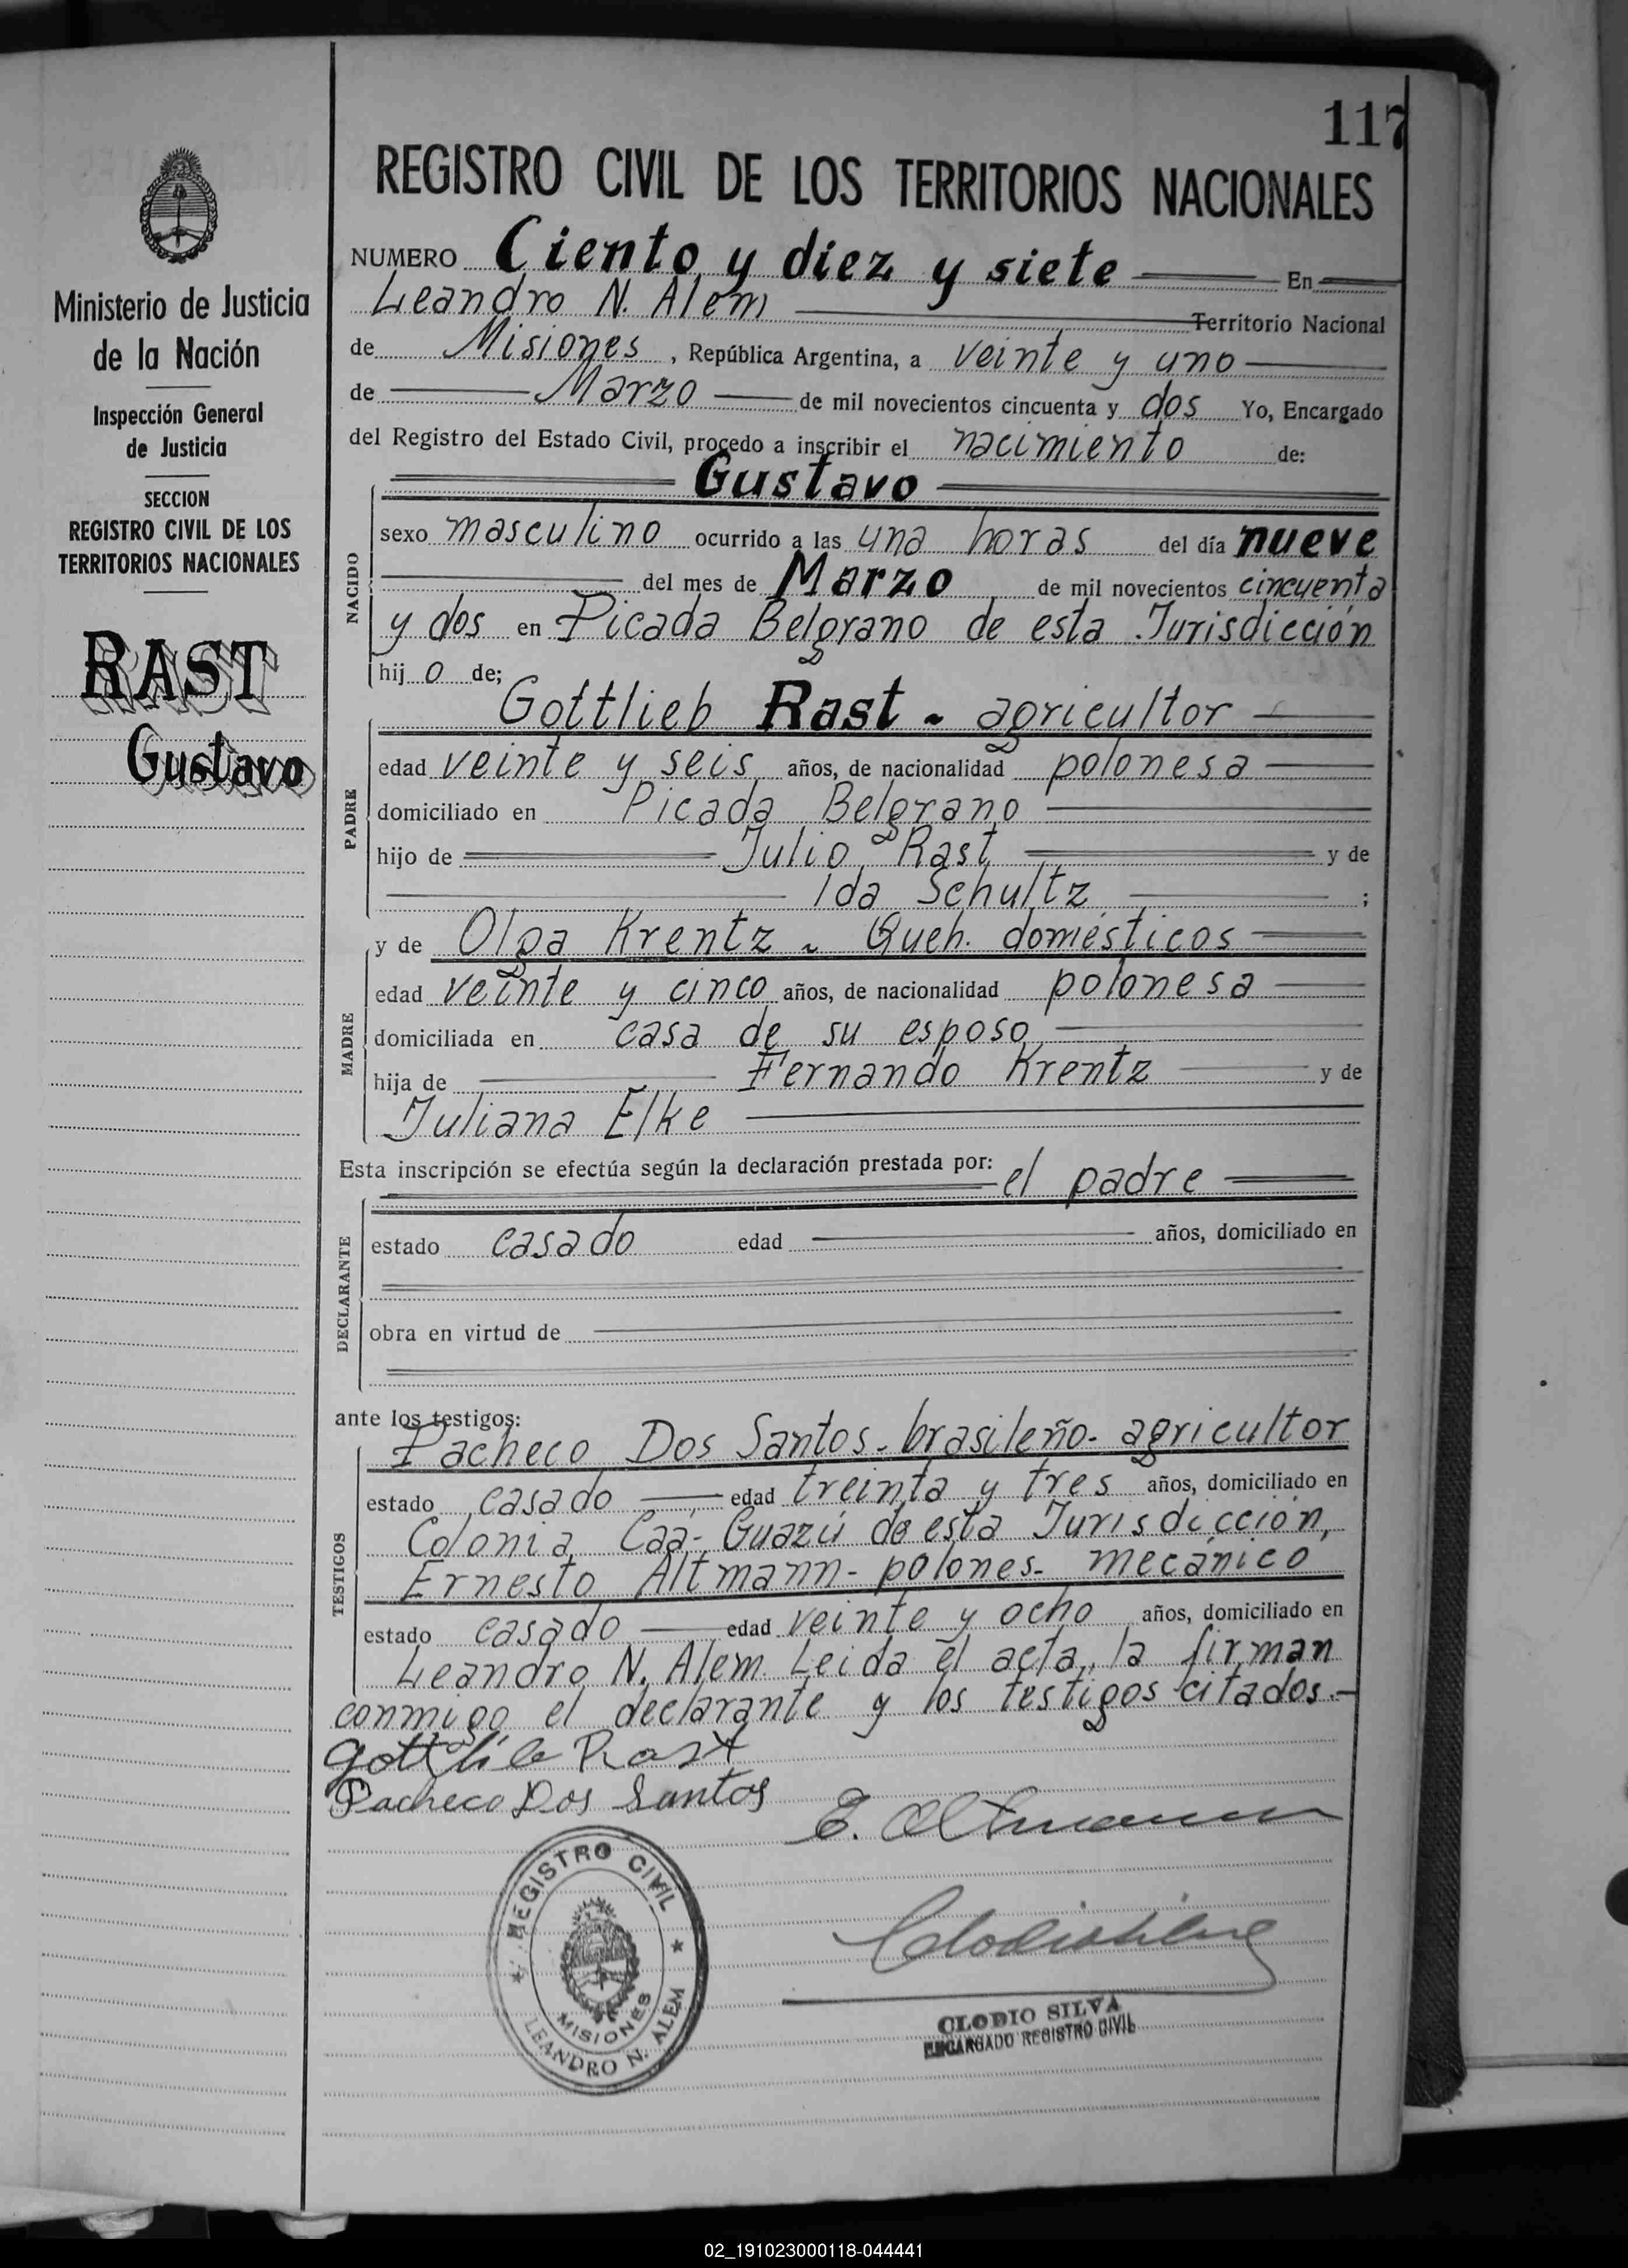 117
REGISTRO CIVIL DE LOS TERRITORIOS NACIONALES
NUMERO Ciento y diez y siete En
Leandro N. Alem Territorio Nacional
de Misiones, República Argentina, a veinte y uno
de Marzo de mil novecientos cincuenta y dos Yo, Encargado
del Registro del Estado Civil, procedo a inscribir el nacimiento de:
Gustavo
NACIDO
sexo masculino ocurrido a las una horas del día nueve
del mes de Marzo de mil novecientos cincuenta
y dos en Picada Belgrano de esta Jurisdicción
hijo de;
Gottlieb Rast - agricultor
PADRE
edad veinte y seis años, de nacionalidad polonesa
domiciliado en Picada Belgrano
hijo de Julio Rast y de
Ida Schultz ;
y de Olga Krentz - Queh. domésticos
MADRE
edad veinte y cinco años, de nacionalidad polonesa
domiciliada en casa de su esposo
hija de Fernando Krentz y de
Juliana Elke
Esta inscripción se efectúa según la declaración prestada por: el padre
DECLARANTE
estado casado edad años, domiciliado en
obra en virtud de
ante los testigos:
Pacheco Dos Santos - brasileño - agricultor
TESTIGOS
estado casado edad treinta y tres años, domiciliado en
Colonia Caá-Guazú de esta Jurisdicción,
Ernesto Altmann - polones - mecánico
estado casado edad veinte y ocho años, domiciliado en
Leandro N. Alem. Leida el acta, la firman
conmigo el declarante y los testigos citados.-
Gottlieb Rast
Pacheco Dos Santos
E. Altmann
REGISTRO CIVIL
MISIONES
LEANDRO N. ALEM
Clodio Silva
CLODIO SILVA
ENCARGADO REGISTRO CIVIL
Ministerio de Justicia
de la Nación
Inspección General
de Justicia
SECCION
REGISTRO CIVIL DE LOS
TERRITORIOS NACIONALES
RAST
Gustavo
02_191023000118-044441